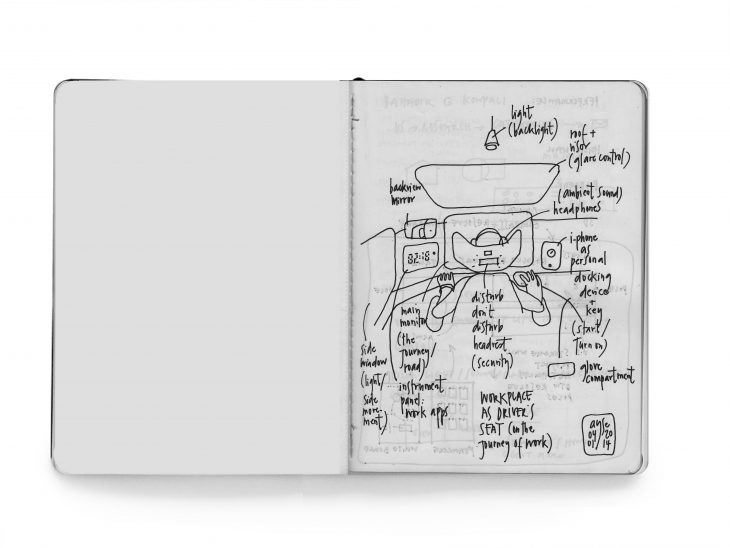 light
(backlight)
roof +
visor
(glare control)
backview
mirror
(ambient sound)
headphones
82:18
i-phone
as
personal
docking
device
+
key
(start/
turn on)
main
monitor
(the
journey/
road)
disturb
don't
disturb
headrest
(security)
side
window
(light/
side
move-
ment)
instrument
panel:
work apps
glove
compartment
WORKPLACE
AS DRIVER'S
SEAT (in the
journey of work)
04 20
01 14